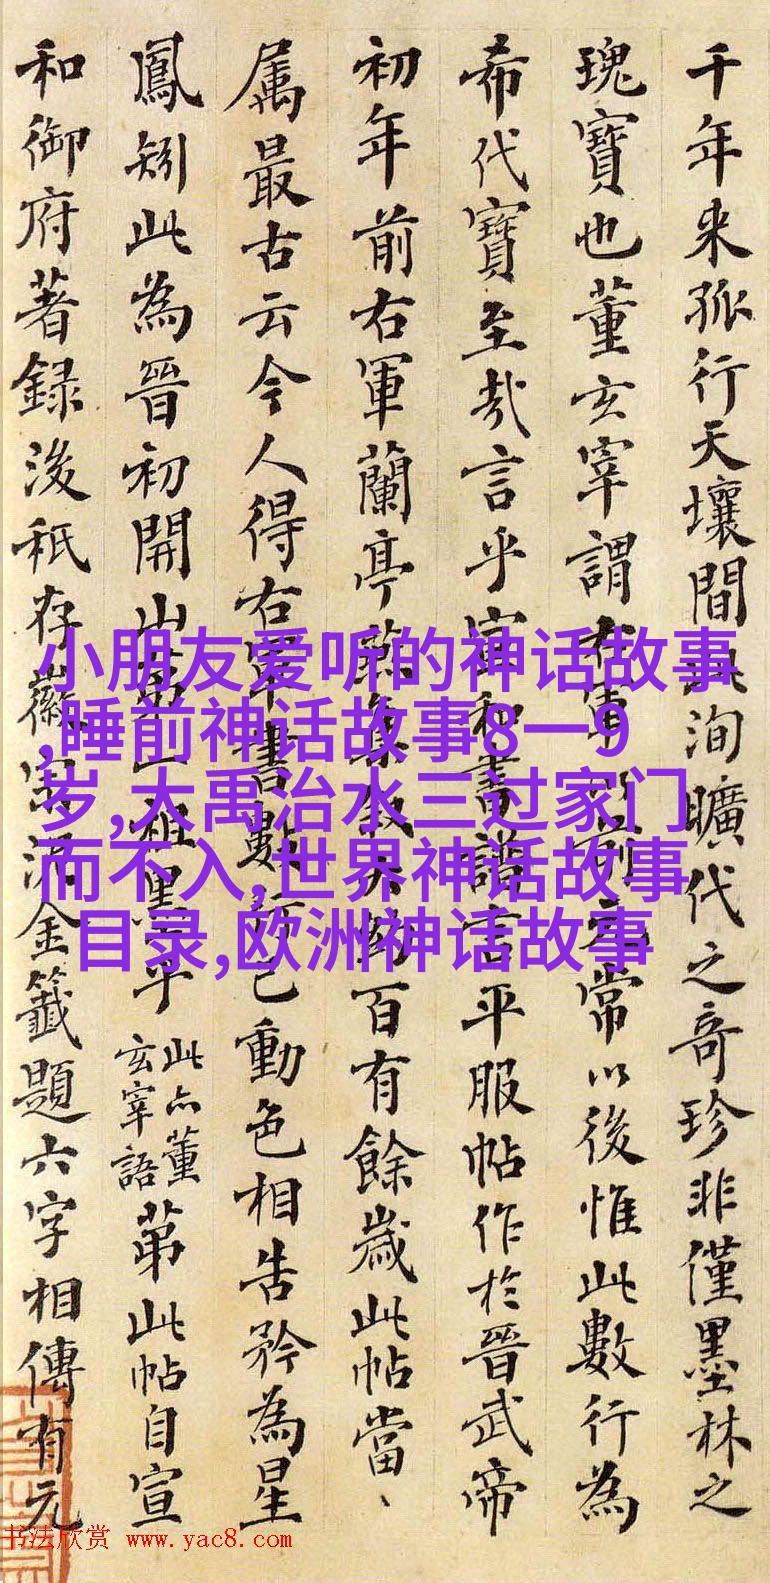 千年来孤行天壤間此洵曠代之奇珍非僅墨林之
瑰寶也董玄宰謂右軍以前元常以後惟此數行為
希代寶至哉言乎宣和書譜言平服帖作於晉武帝
初年前右軍蘭亭集叙大百有餘歲此帖當
属最古云今人得右軍書數行已動色相告矜為星
鳳矧此為晉初開山第一祖墨乎此亦董玄宰語第此帖自宣
和御府著録後秖存徽宗泥金籤題六字相傳有元
小朋友爱听的神话故事
,睡前神话故事8一9
岁,大禹治水三过家门
而不入,世界神话故事
目录,欧洲神话故事
书法欣赏 www.yac8.com